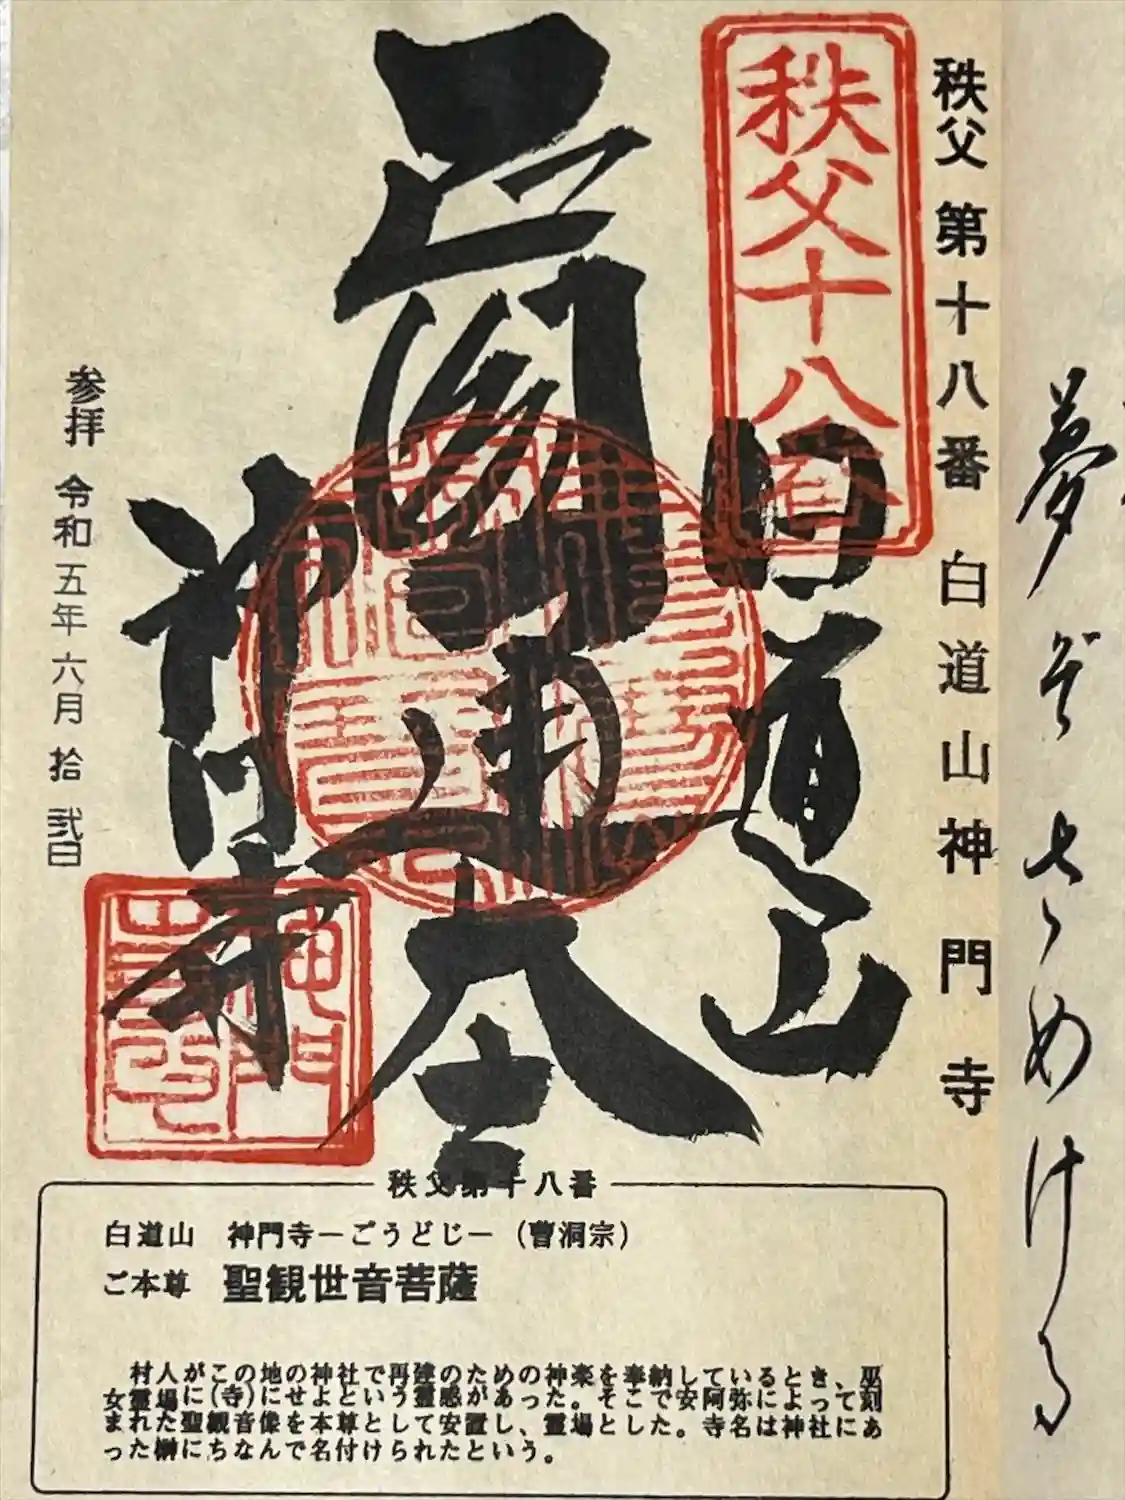 夢ぞさめける
秩父 第十八番 白道山神門寺
秩父十八番
白道山
神門寺
参拝 令和五年六月拾弐日
秩父第十八番
白道山 神門寺－ごうどじ－（曹洞宗）
ご本尊 聖観世音菩薩
村人がこの地の神社で再建のための神楽を奉納しているとき、巫
女霊場に(寺)にせよという霊感があった。そこで安阿弥によって刻
まれた聖観音像を本尊として安置し、霊場とした。寺名は神社にあ
った榊にちなんで名付けられたという。